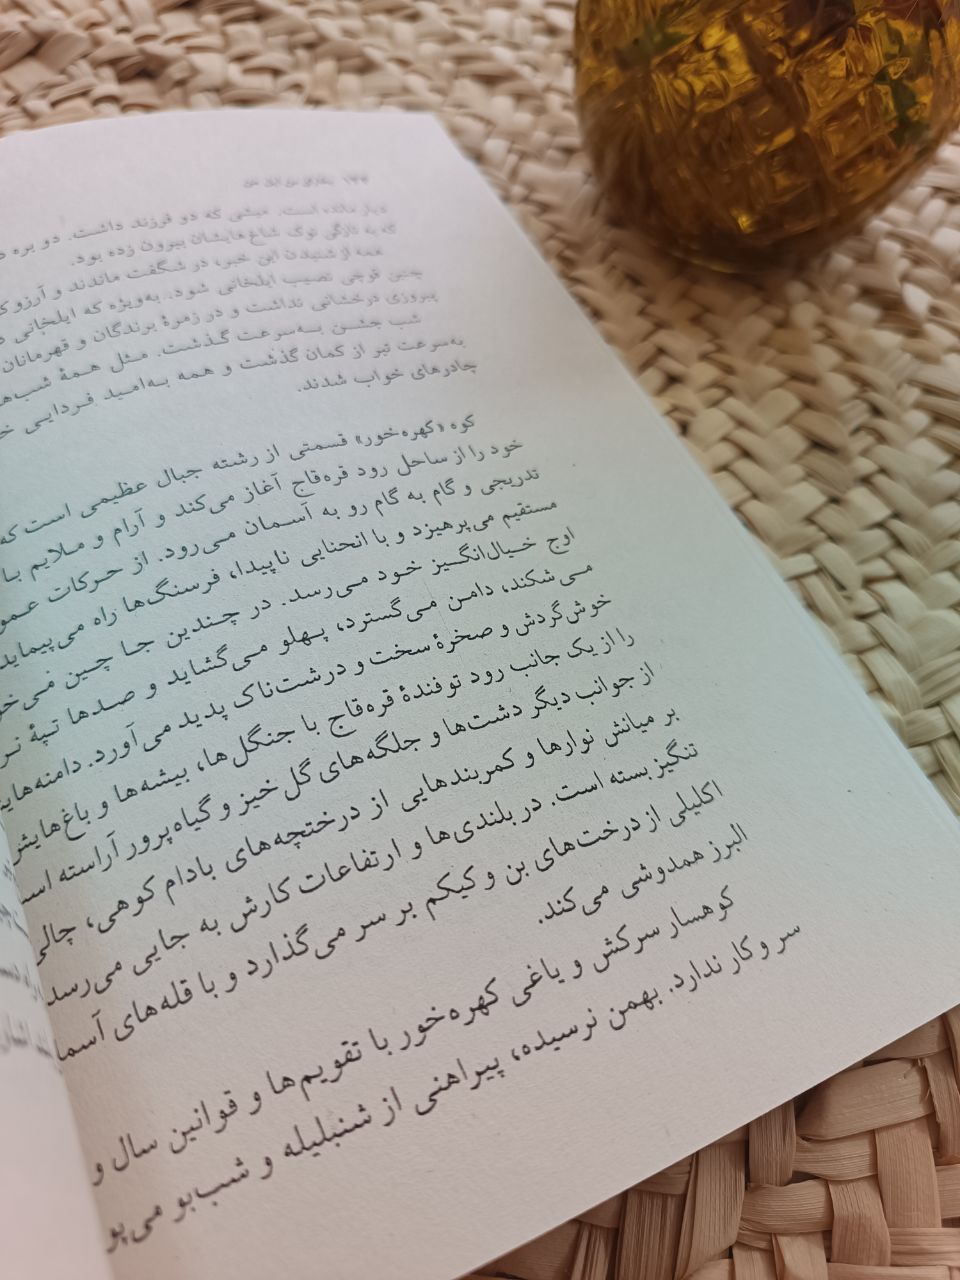 ۱۴۴ بخارای من ایل من
دیار مانده است. میشی که دو فرزند داشت. دو بره
که به تازگی نوک شاخ‌هایشان بیرون زده بود.
همه از شنیدن این خبر، در شگفت ماندند و آرزو
چنین قوچی نصیب ایلخانی شود. به‌ویژه که ایلخانی
پیروزی درخشانی نداشت و در زمرهٔ برندگان و قهرمانان
شب جشن به‌سرعت گذشت. مثل همهٔ
به‌سرعت تیر از کمان گذشت و همه به‌امید فردایی
چادرهای خواب شدند.
کوه «کهره‌خور» قسمتی از رشته جبال عظیمی است که
خود را از ساحل رود قره‌قاج آغاز می‌کند و آرام و ملایم با
تدریجی و گام به گام رو به آسمان می‌رود. از حرکات
مستقیم می‌پرهیزد و با انحنایی ناپیدا، فرسنگ‌ها راه می‌پیماید
اوج خیال‌انگیز خود می‌رسد. در چندین جا چین
می‌شکند، دامن می‌گسترد، پهلو می‌گشاید و صدها تپهٔ
خوش‌گردش و صخرهٔ سخت و درشت‌ناک پدید می‌آورد.
را از یک جانب رود توفندهٔ قره‌قاج با جنگل‌ها، بیشه‌ها و باغ‌هایش
از جوانب دیگر دشت‌ها و جلگه‌های گل‌خیز و گیاه‌پرور آراسته
بر میانش نوارها و کمربندهایی از درختچه‌های بادام کوهی،
تنگیز بسته است. در بلندی‌ها و ارتفاعات کارش به جایی می‌رسد
اکلیلی از درخت‌های بن و کیکم بر سر می‌گذارد و با قله‌های
البرز همدوشی می‌کند.
کوهسار سرکش و یاغی کهره‌خور با تقویم‌ها و قوانین سال و
سر و کار ندارد. بهمن نرسیده، پیراهنی از شنبلیله و شب‌بو